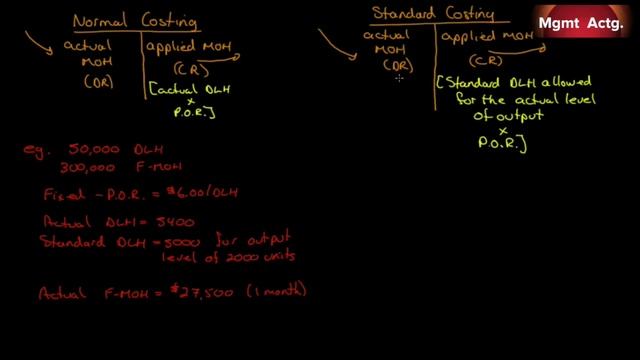 Normal Costing
actual
MOH
(DR)
applied MOH
(CR)
[actual DLH
x
P.O.R.]
Standard Costing
actual
MOH
(DR)
applied MOH
(CR)
[Standard DLH allowed
for the actual level
of output
x
P.O.R.]
Mgmt Actg.
eg. 50,000 DLH
300,000 F-MOH
Fixed - P.O.R. = $6.00/DLH
Actual DLH = 5400
Standard DLH = 5000 for output
level of 2000 units
Actual F-MOH = $27,500 (1 month)